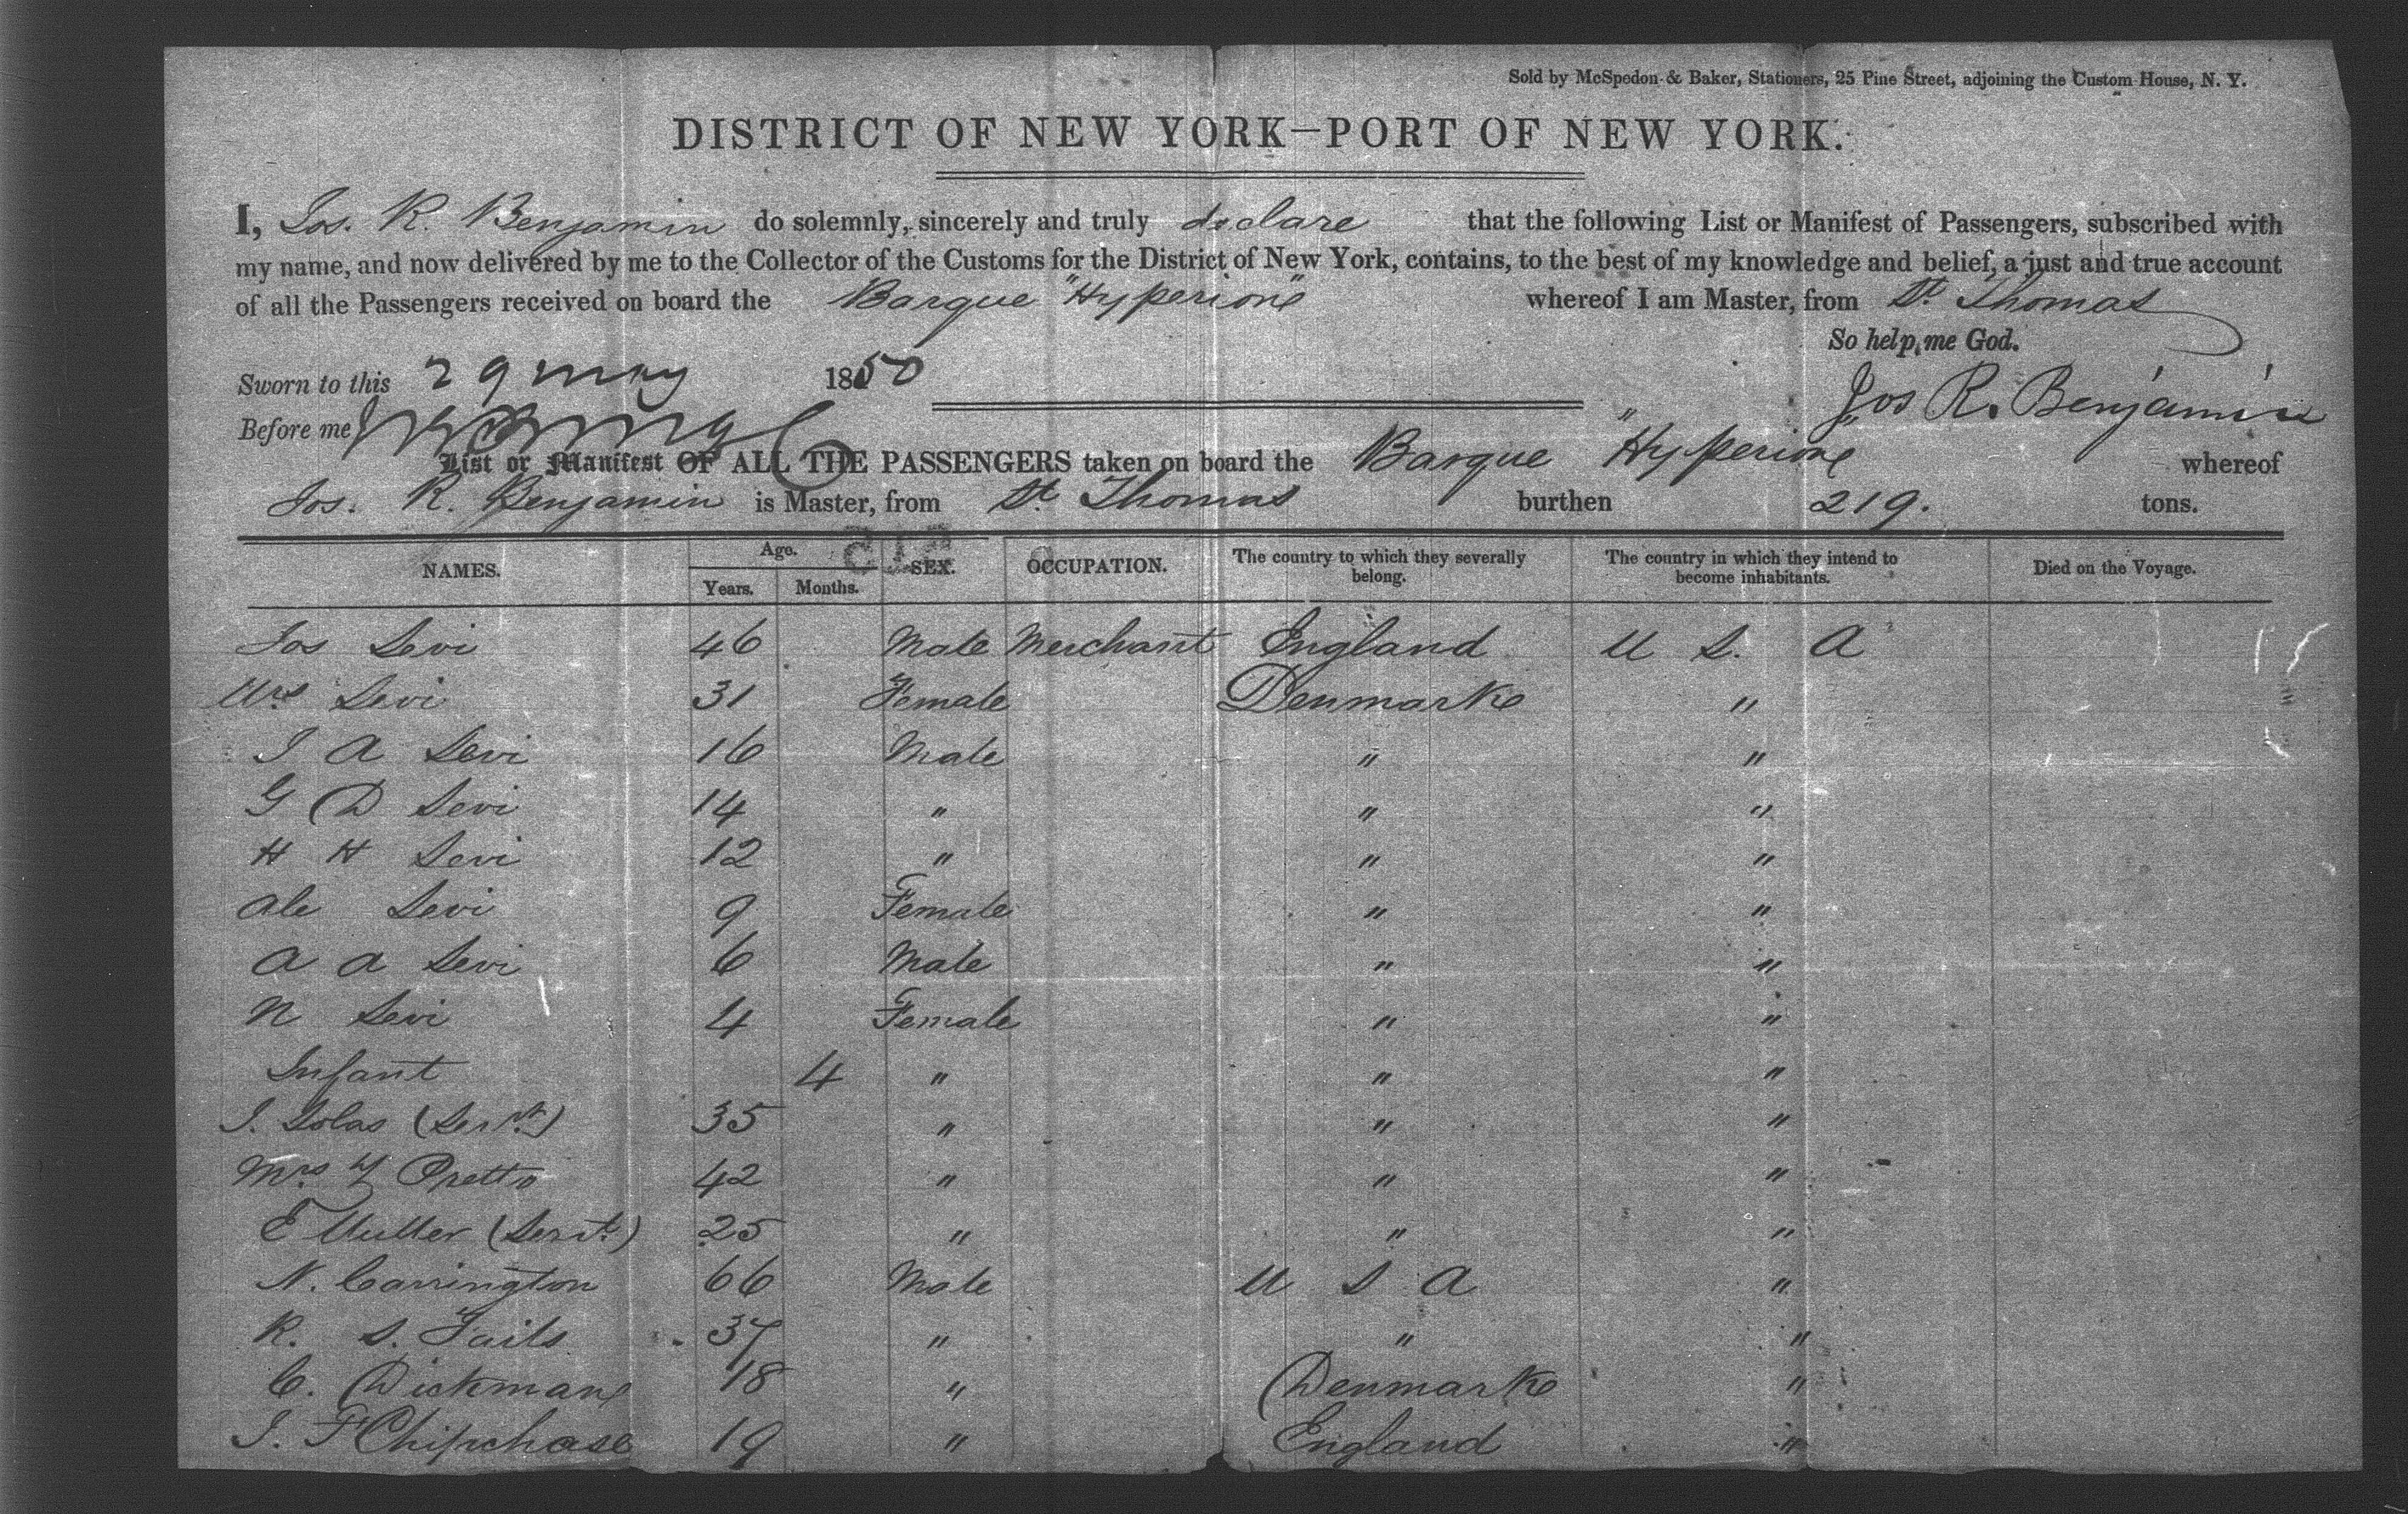 Sold by McSpedon & Baker, Stationers, 25 Pine Street, adjoining the Custom House, N. Y.
DISTRICT OF NEW YORK—PORT OF NEW YORK.
I, Jos. R. Benjamin do solemnly, sincerely and truly declare that the following List or Manifest of Passengers, subscribed with
my name, and now delivered by me to the Collector of the Customs for the District of New York, contains, to the best of my knowledge and belief, a just and true account
of all the Passengers received on board the Barque "Hyperion" whereof I am Master, from St. Thomas
So help me God.
Sworn to this 29 may 1850
Jos R. Benjamin
Before me
List or Manifest OF ALL THE PASSENGERS taken on board the Barque "Hyperion" whereof
Jos. R. Benjamin is Master, from St. Thomas burthen 219. tons.
NAMES. Age. Years. Months. SEX. OCCUPATION. The country to which they severally belong. The country in which they intend to become inhabitants. Died on the Voyage.
Jos Levi 46 Male Merchant England U S. A
Mrs Levi 31 Female Denmark "
J A Levi 16 Male " "
G D Levi 14 " " "
H H Levi 12 " " "
Ale Levi 9 Female " "
A A Levi 6 Male " "
N Levi 4 Female " "
Infant 4 " " "
J. Solas (Servt.) 35 " " "
Mrs Y Pretto 42 " " "
E Muller (Servt.) 25 " " "
N. Carrington 66 Male U S A "
R. S. 37 " " "
C. Dickman 18 " Denmark "
J. F Chipchase 19 " England "